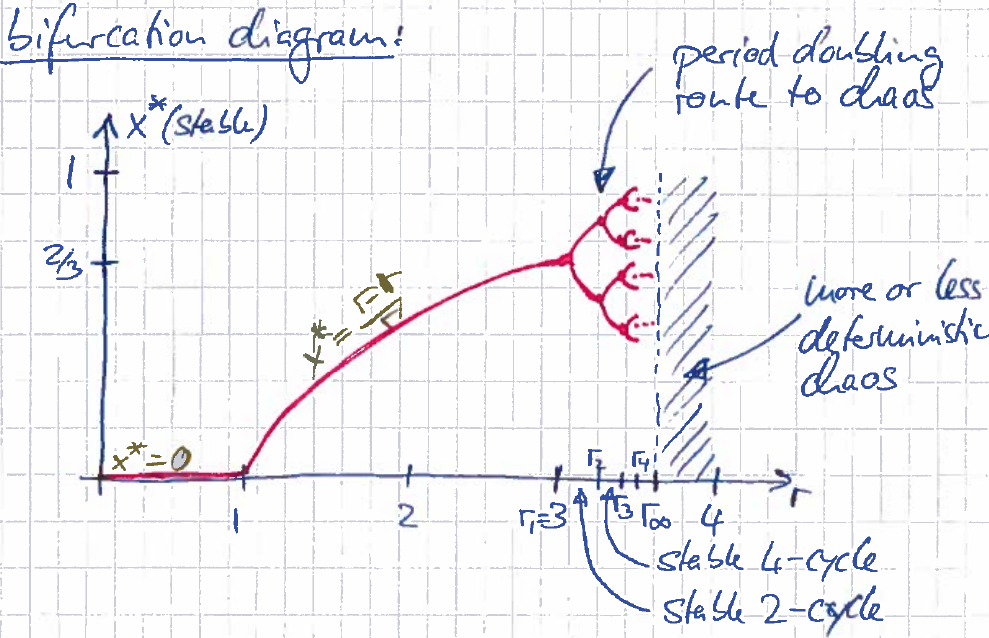 bifurcation diagram:
period doubling
route to chaos
x* (stable)
1
2/3
x* = (r-1)/r
more or less
deterministic
chaos
x* = 0
r₂ r₄
r
1 2 r₁=3 r₃ r∞ 4
stable 4-cycle
stable 2-cycle